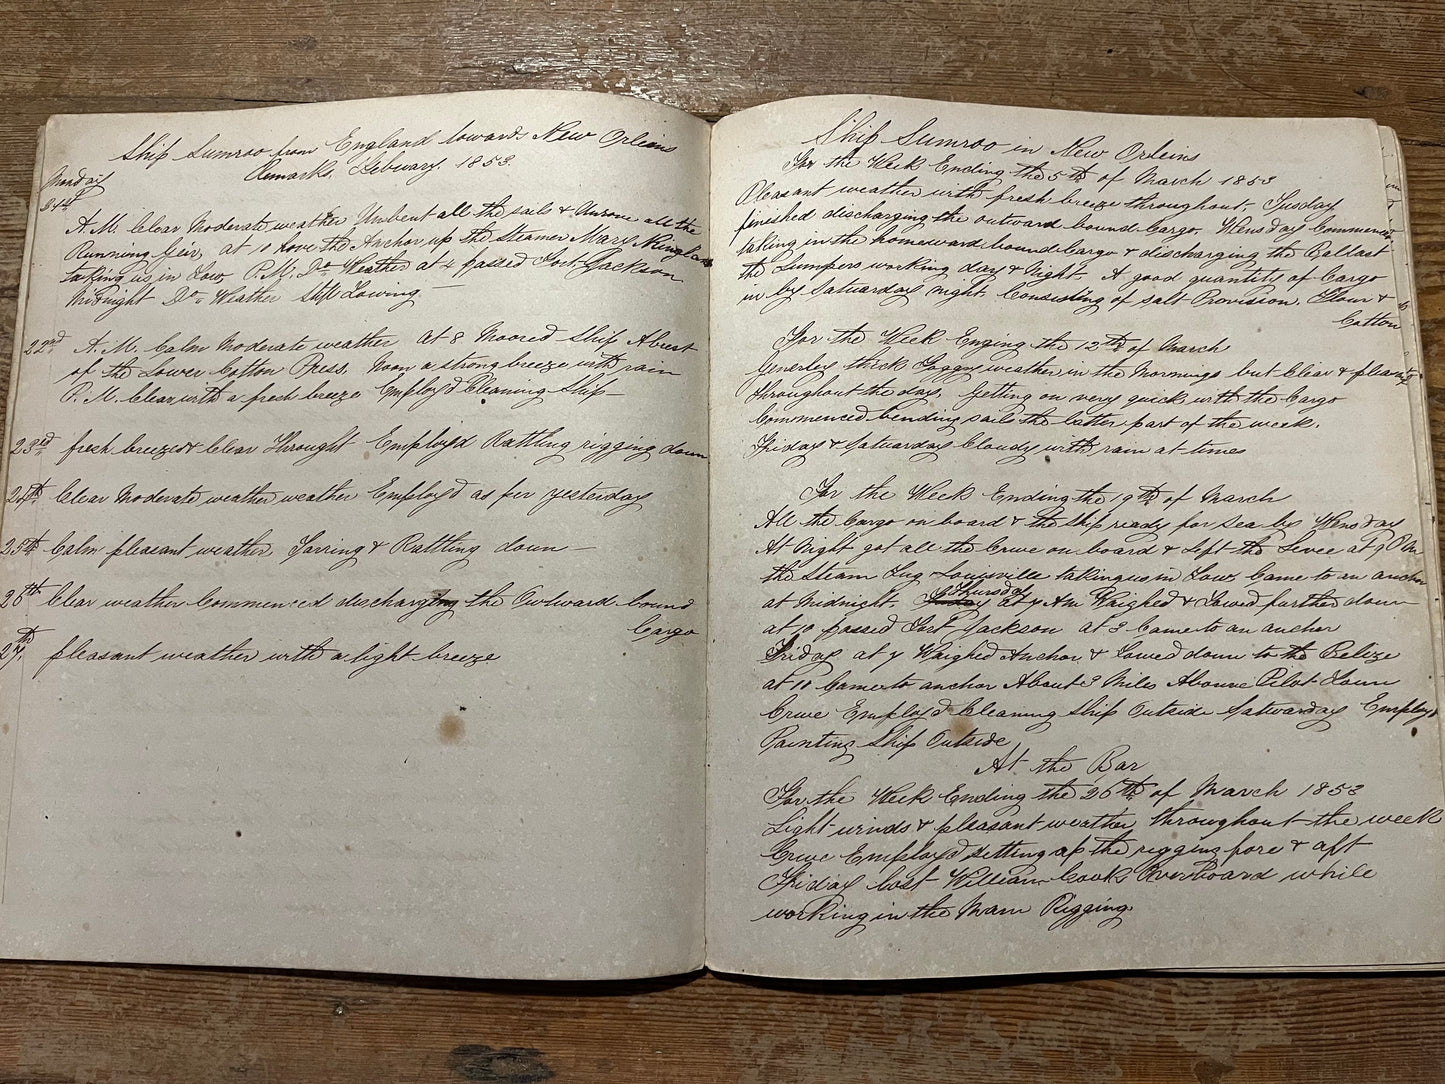 Ship Sumroo from England towards New Orleins
Remarks, Febuary. 1853.
Monday
21st
A.M. Clear Moderate weather Unbent all the sails & Unrove all the
Running Geir, at 10 hove the Anchor up the Steamer Mary Kingland
taking us in tow, P.M. Do Weather at 4 passed Fort Jackson
Midnight Do Weather Still towing —
22nd A.M. Calm Moderate weather at 8 Moored Ship Abrest
of the Lower Cotton Press. Noon a strong breeze with rain
P.M. Clear with a fresh breeze Employ'd Cleaning Ship —
23rd fresh breeze & Clear throught Employ'd Rattling rigging down
24th Clear Moderate weather, weather Employ'd as per yesterday
25th Calm pleasant weather, Tarring & Rattling down —
26th Clear weather Commenced discharging the Outward bound
Cargo
27th, pleasant weather with a light breeze
Ship Sumroo in New Orleins
For the Week Ending the 5th of March 1853
Pleasant weather with fresh breeze throughout; Tusday
finished discharging the outward bound Cargo. Wensday Commenced
taking in the homeward bound Cargo & discharging the Ballast
the Lumpers working day & Night. A good quantity of Cargo
in by Satuarday night, Consisting of salt Provision, Flour &
Cotton
For the Week Enging the 12th of March
Generley thick Foggy weather in the Mornings but Clear & pleasant
throughout the day, getting on very quick with the Cargo
Commenced bending sails the latter part of the week.
Friday & Satuarday Cloudy with rain at times
For the Week Ending the 19th of March
All the Cargo on board & the Ship ready for Sea by Wensday
At Night got all the Crue on board & Left the Levee at 9 P.M
the Steam Tug Louisville taking us in Tow, Came to an anchor
at Midnight. Thursday at 4 Am Waighed & Towed further down
at 10 passed Fort Jackson at 3 Came to an anchor
Friday at 4 Waighed Anchor & Towed down to the Belize
at 10 Came to anchor About 3 Miles Abouve Pilot Town
Crue Employ'd Cleaning Ship Outside Satuarday Employ'd
Painting Ship Outside
At the Bar
For the Week Ending the 26th of March 1853
Light winds & pleasant weather throughout the week
Crue Employ'd setting up the rigging fore & aft
Friday lost William Cook Overboard while
working in the Main Rigging